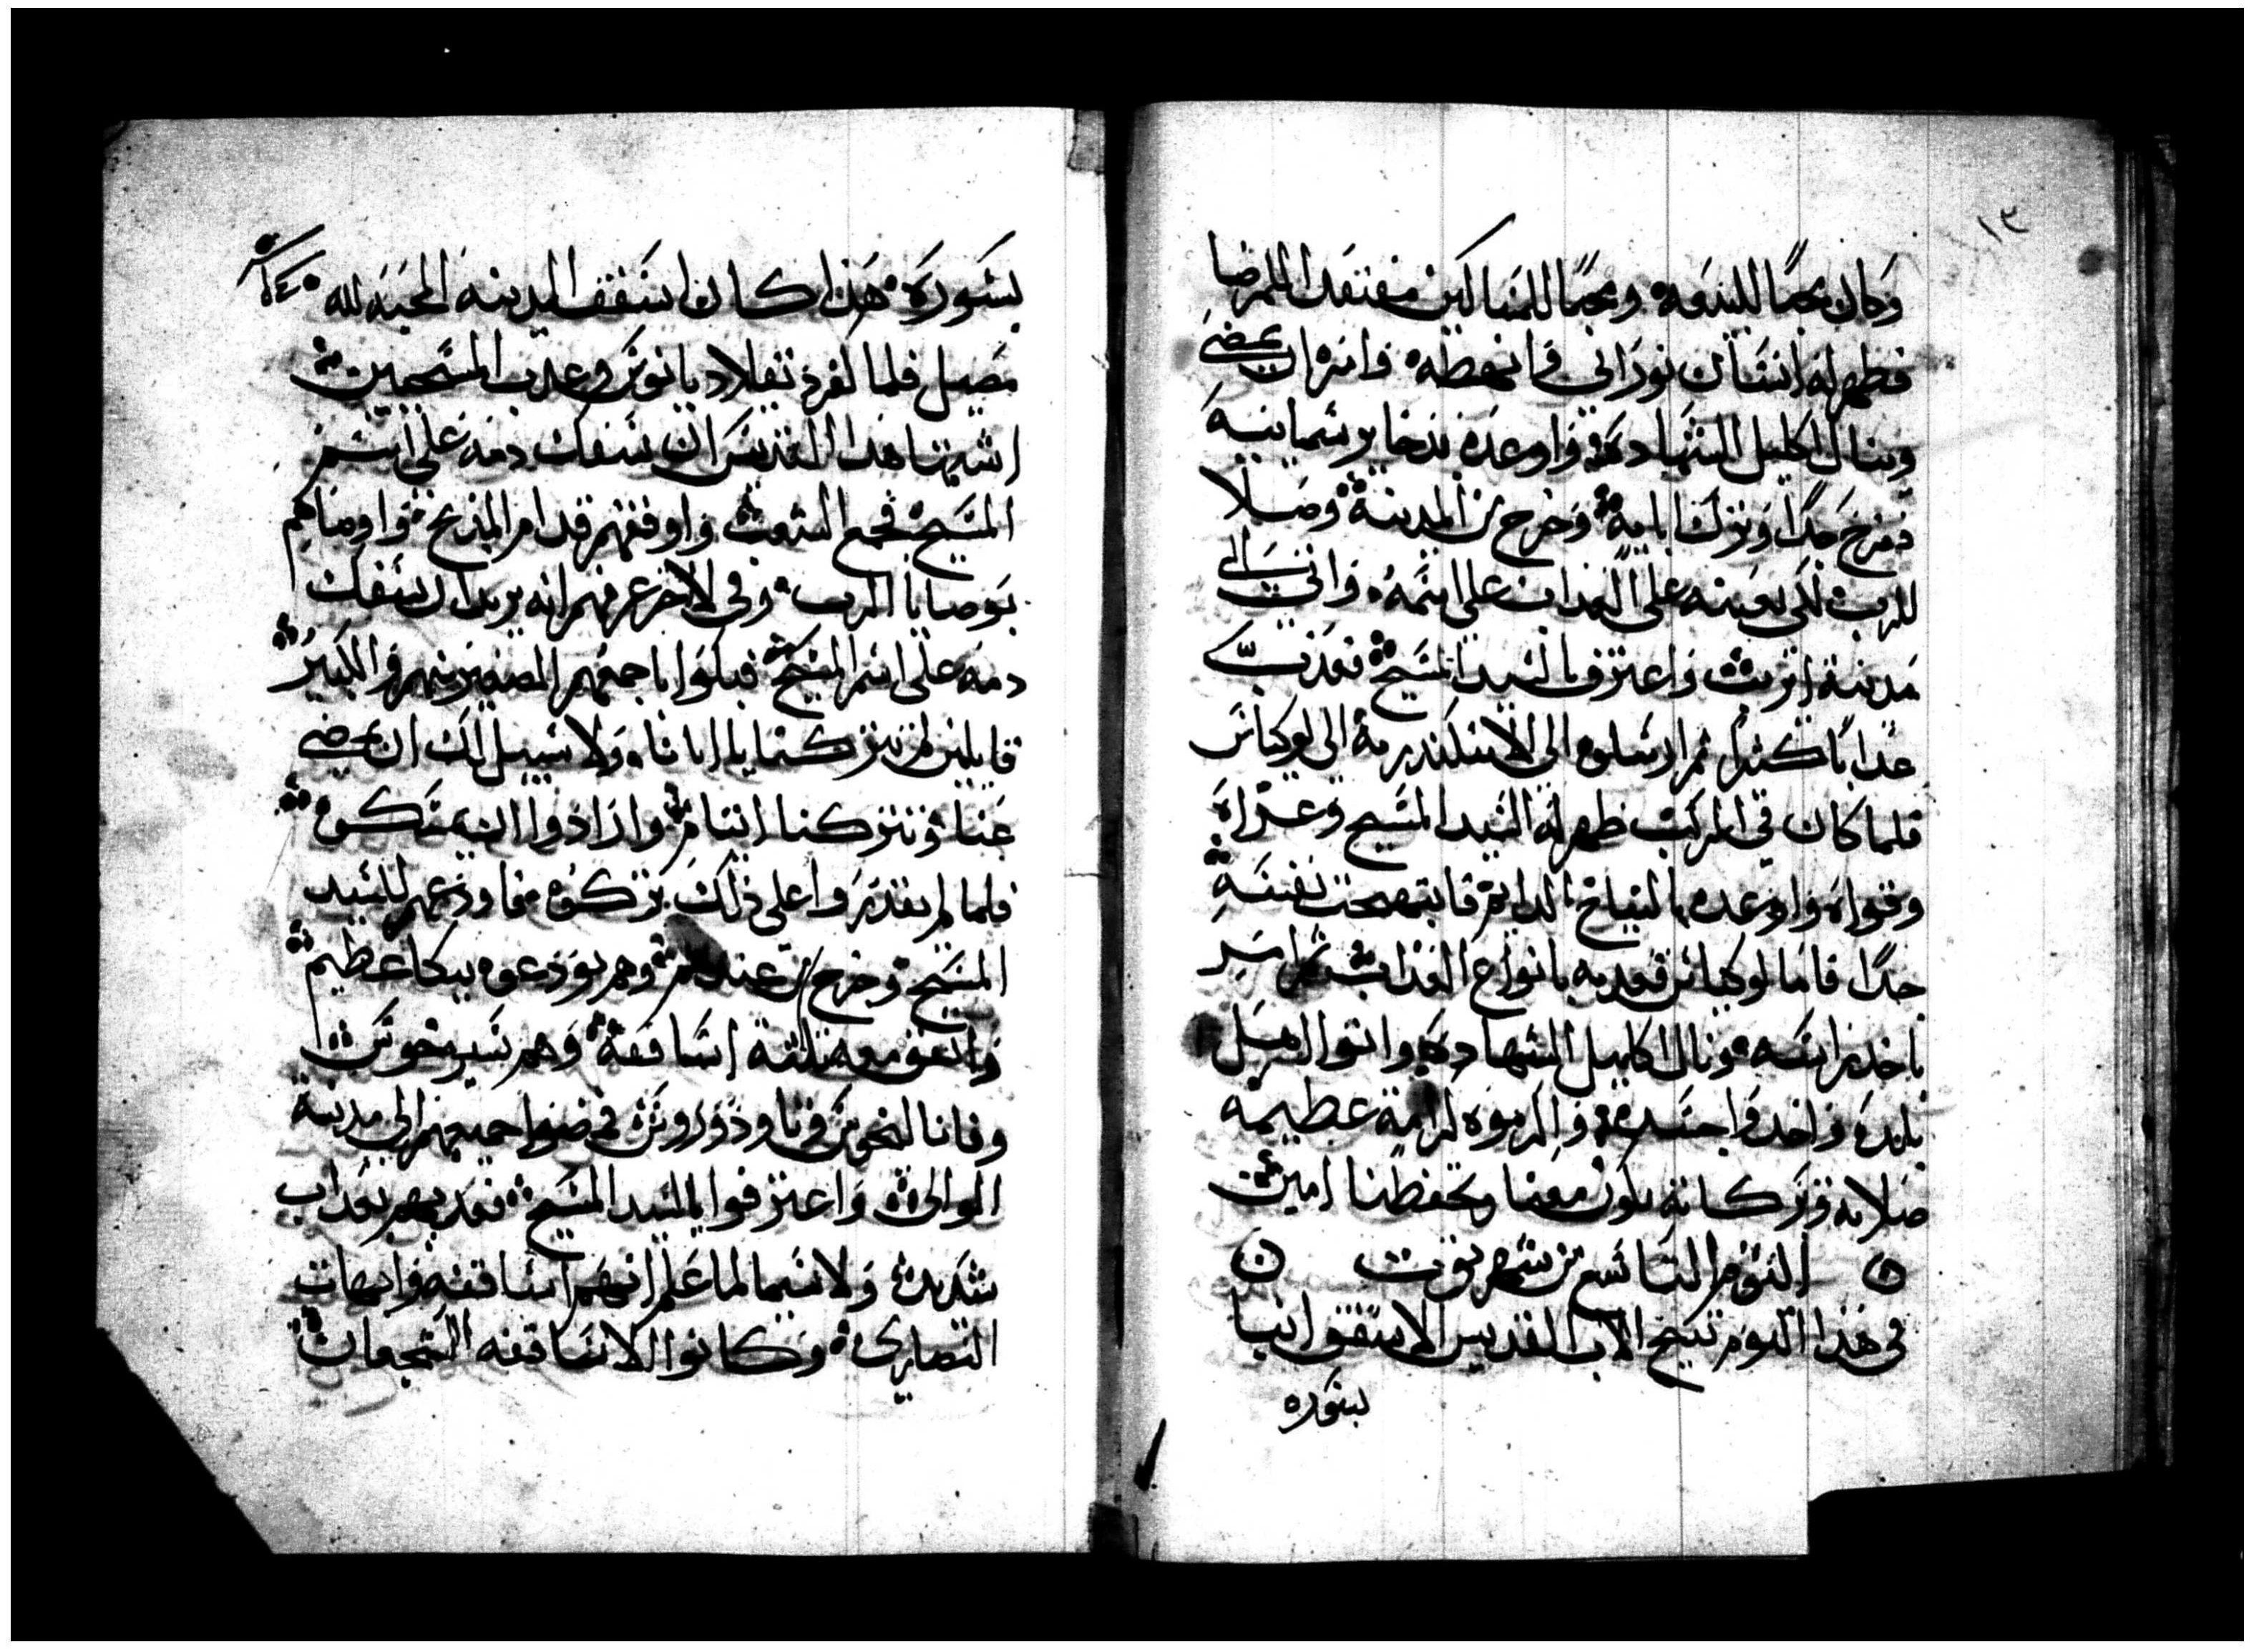 ١٣
وكان محبا للبيعه ومحبا للمساكين مفتقد المرضا
فظهر له انسان نوراني فانهضه وامره ان يمضي
وينال اكليل الشهاده واوعده بذخاير سماييه
ففرح جدا وترك ابايه وخرج من المدينة وصلا
للرب لكي يعينه على العداب على اسمه واتى الى
مدينة اتريب واعترف بالسيد المسيح فعذب
عدابا كثيرا ثم ارسلوه الى الاسكندريه الى لوكياس
فلما كان في المركب ظهر له السيد المسيح وعزاه
وقواه واوعده بالنياح الدايم فابتهجت نفسه
جدا فاما لوكياس فعدبه بانواع العذاب ثم امر
باخد راسه ونال اكليل الشهاده واتوا اهل
بلده واخدوا جسده واكرموه كرامة عظيمه
صلاته وبركاته تكون معنا وتحفظنا امين
اليوم التاسع من شهر توت
في هذا اليوم تنيح الاب القديس الاسقف انبا
بسوره
بسوره هذا كان اسقف المدينه المحبه لله
مصيل فلما كفر دقلاديانوس وعدب المسيحيين
اشتها هدا القديس ان يسفك دمه على اسم
المسيح فجمع الشعب واوقفهم قدام المذبح واوصاهم
بوصايا الرب وفي الاخر عرفهم انه يريد ان يسفك
دمه على اسم المسيح فبكوا باجمعهم الصغير منهم والكبير
قايلين لم تتركنا يا ابانا ولا سبيل لك ان تمضي
عنا وتتركنا ايتام وارادوا ان يمسكوه
فلما لم يقدروا على ذلك تركوه فاودعهم للسيد
المسيح وخرج من عندهم وهم يودعوه ببكا عظيم
واتفق معه ثلثة اساقفة وهم بسيخوس
وفانا ليخوس وتاودوروس فمضوا جميعهم الى مدينة
الوالي واعترفوا بالسيد المسيح فعدبهم بعداب
شديد ولا سيما لما علم انهم اساقفه وابهات
النصارى وكانوا الاساقفه الشجعان